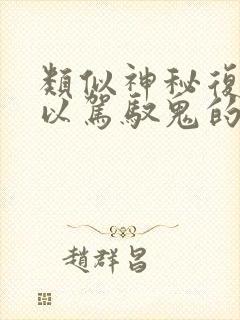 類似神秘復
以駕馭鬼的
趙群昌